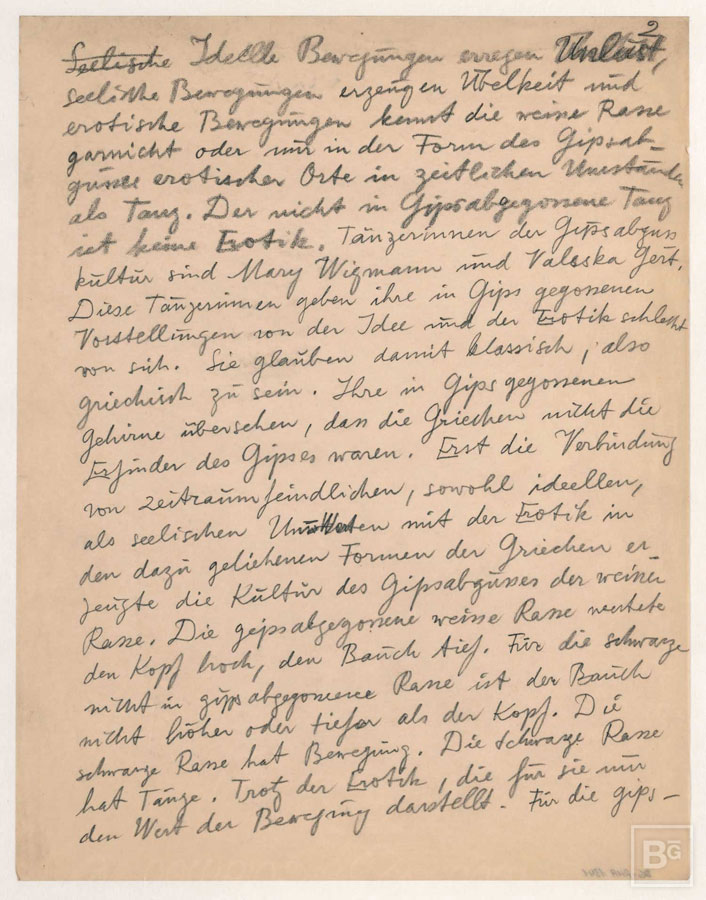 2
Seelische Ideelle Bewegungen erregen Unlust,
seelische Bewegungen erzeugen Übelkeit und
erotische Bewegungen kennt die weisse Rasse
garnicht oder nur in der Form des Gipsab-
gusses erotischer Orte in zeitlichen Umständen
als Tanz. Der nicht in Gips abgegossene Tanz
ist keine Erotik. Tänzerinnen der Gipsabguss
kultur sind Mary Wigmann und Valeska Gert.
Diese Tänzerinnen geben ihre in Gips gegossenen
Vorstellungen von der Idee und der Erotik schlecht
von sich. Sie glauben damit klassisch, also
griechisch zu sein. Ihre in Gips gegossenen
Gehirne übersehen, dass die Griechen nicht die
Erfinder des Gipses waren. Erst die Verbindung
von zeitraumfeindlichen, sowohl ideellen,
als seelischen mit der Erotik in
den dazu geliehenen Formen der Griechen er-
zeugte die Kultur des Gipsabgusses der weissen
Rasse. Die gipsabgegossene weisse Rasse wertete
den Kopf hoch, den Bauch tief. Für die schwarze
nicht in gips abgegossene Rasse ist der Bauch
nicht höher oder tiefer als der Kopf. Die
schwarze Rasse hat Bewegung. Die schwarze Rasse
hat Tänze. Trotz der Erotik, die für sie nur
den Wert der Bewegung darstellt. Für die gips-
BG